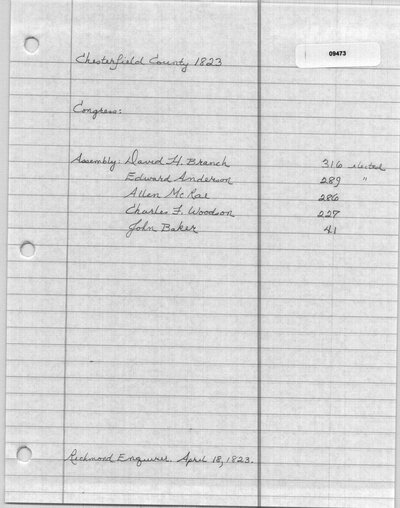 09473
Chesterfield County 1823
Congress:
Assembly: David H. Branch 316 elected
Edward Anderson 289 "
Allen McRae 286
Charles F. Woodson 227
John Baker 41
Richmond Enquirer. April 18, 1823.